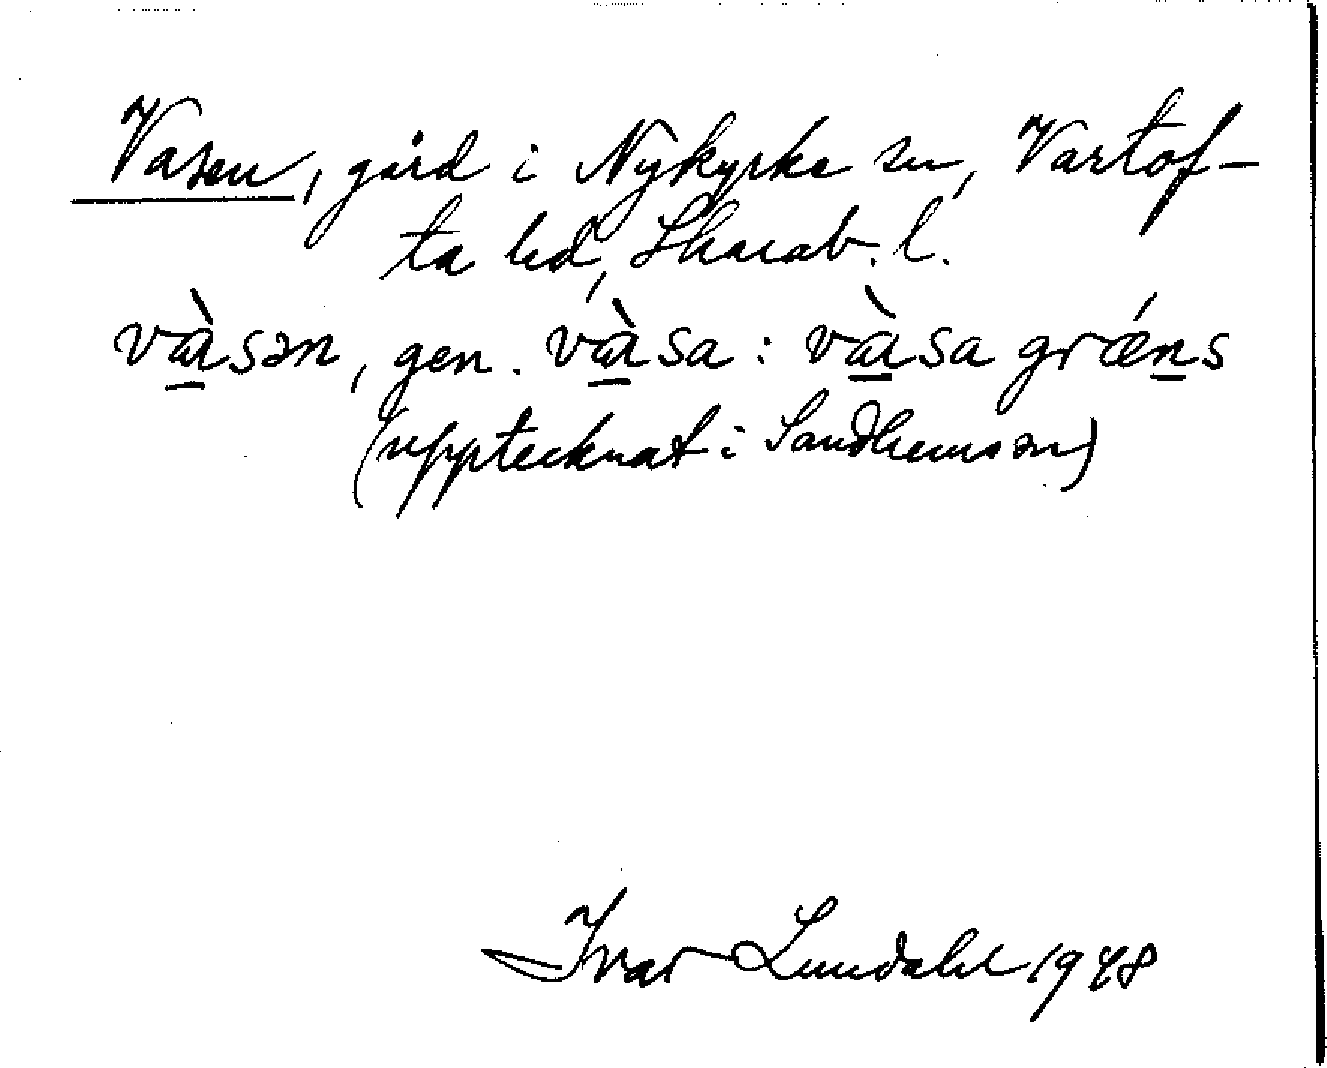 Vasen, gård i Nykyrke sn, Vartof-
ta hd, Skarab. l.
và̱sən, gen. và̱sa : và̱sa grǽṉs
(upptecknat i Sandhems sn)
Ivar Lundahl 1948